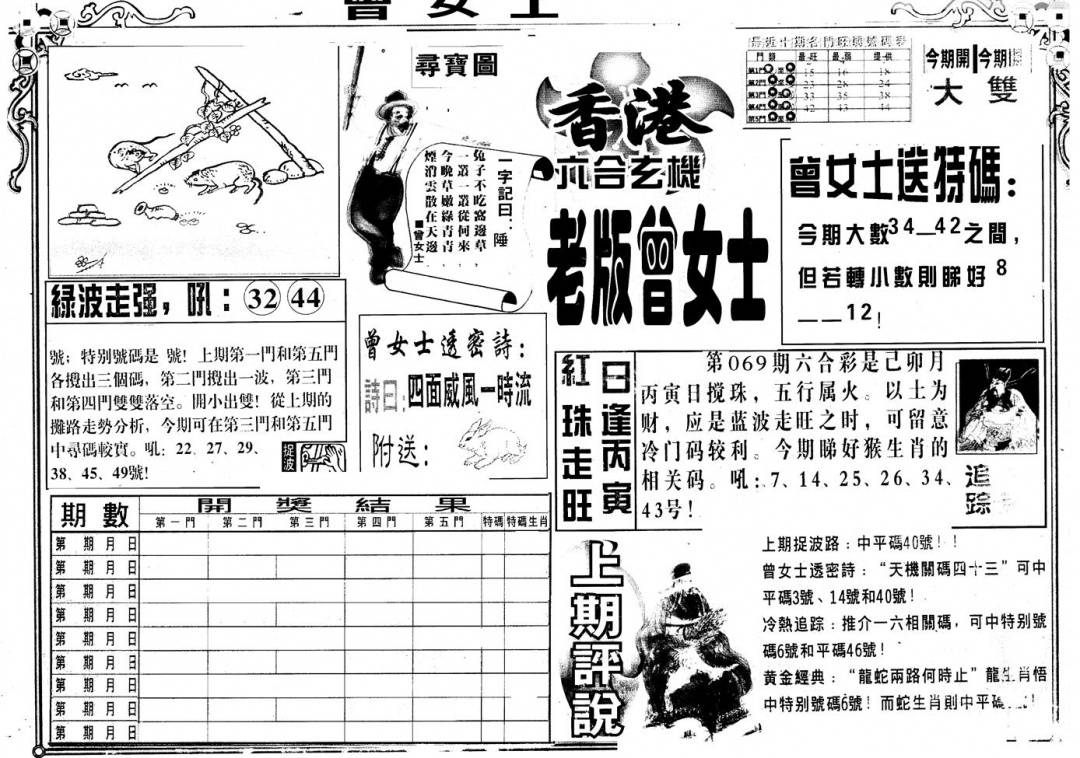 曾女士
尋寶圖
一字記曰：陲
兔子不吃窩邊草，
一叢一叢從何來，
今晚草嫩綠青青，
煙消雲散在天邊
曾女士
香港
六合玄機
老版曾女士
最近十期名門旺弱號碼表
門類 最旺 最弱 提供
第1門 15 16 18
第2門 23 28 24
第3門 33 35 38
第4門 42 43 44
第5門
今期開 今期
大 雙
曾女士送特碼：
今期大數34—42之間，
但若轉小數則睇好8
——12！
綠波走强，吼：32 44
號；特別號碼是 號！上期第一門和第五門
各攪出三個碼，第二門攪出一波，第三門
和第四門雙雙落空。開小出雙！從上期的
攤路走勢分析，今期可在第三門和第五門
中尋碼較實。吼：22、27、29、
38、45、49號！
捉波
曾女士透密詩：
詩曰：四面威風一時流
附送：
紅珠走旺
日逢丙寅
第069期六合彩是己卯月
丙寅日搅珠，五行属火。以土为
财，应是蓝波走旺之时，可留意
冷门码较利。今期睇好猴生肖的
相关码。吼：7、14、25、26、34、
43号！
追踪
期數 開獎結果
第一門 第二門 第三門 第四門 第五門 特碼 特碼生肖
第 期 月 日
第 期 月 日
第 期 月 日
第 期 月 日
第 期 月 日
第 期 月 日
第 期 月 日
第 期 月 日
第 期 月 日
上期評說
上期捉波路：中平碼40號！！
曾女士透密詩：“天機關碼四十三”可中
平碼3號、14號和40號！
冷熱追踪：推介一六相關碼，可中特別號
碼6號和平碼46號！
黃金經典：“龍蛇兩路何時止”龍生肖悟
中特別號碼6號！而蛇生肖則中平碼